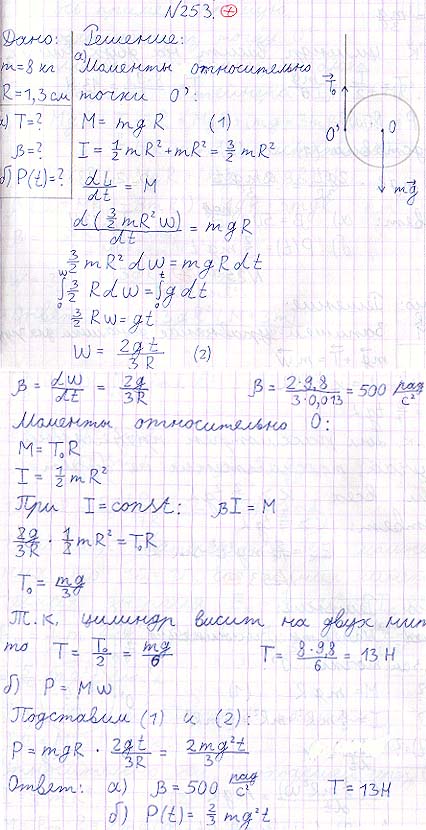 №253. +
Дано: Решение:
m=8 кг а) Моменты относительно
R=1,3 см точки O':
а) T=? M = mgR (1)
β=? I = 1/2 mR² + mR² = 3/2 mR²
б) P(t)=? dL/dt = M
d(3/2 mR²W)/dt = mgR
3/2 mR² dw = mgRdt
∫₀ʷ 3/2 Rdw = ∫₀ᵗ gdt
3/2 RW = gt
W = 2gt/3R (2)
T₀
O' O
mg
β = dW/dt = 2g/3R β = 2·9,8/3·0,013 = 500 рад/с²
Моменты относительно O:
M = T₀R
I = 1/2 mR²
При I=const: βI = M
2g/3R · 1/2 mR² = T₀R
T₀ = mg/3
Т.к. цилиндр висит на двух нит
то T = T₀/2 = mg/6 T = 8·9,8/6 = 13 Н
б) P = Mω
Подставим (1) и (2):
P = mgR · 2gt/3R = 2mg²t/3
Ответ: а) β = 500 рад/с² T = 13Н
б) P(t) = 2/3 mg²t